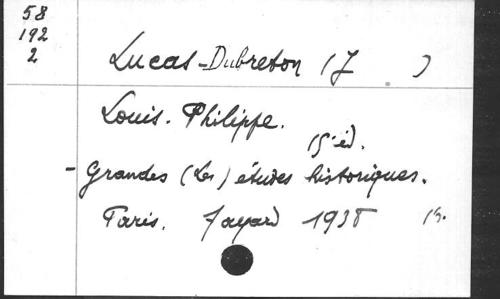 58
192
2
Lucas-Dubreton (J )
Louis. Philippe.
15e éd.
- Grandes (Les) études historiques.
Paris. Fayard 1938